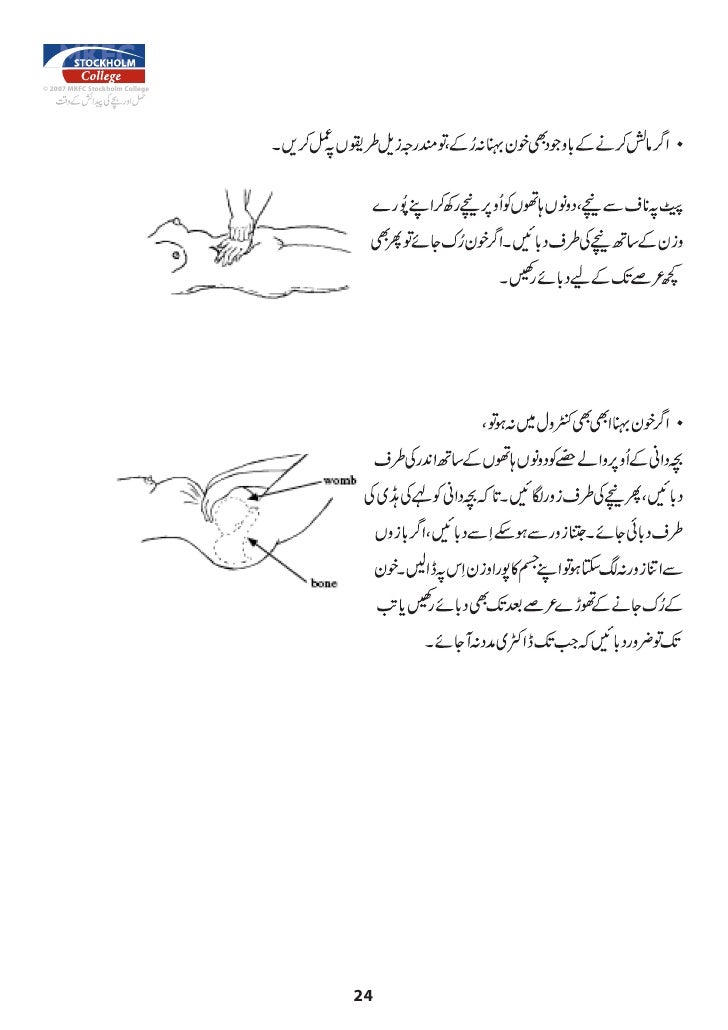 MKFC
STOCKHOLM
College
© 2007 MKFC Stockholm College
حمل اور بچے کی پیدائش کے وقت
• اگر مالش کرنے کے باوجود بھی خون بہنا نہ رُکے، تو مندرجہ زیل طریقوں پہ عمل کریں۔
پیٹ پہ ناف سے نیچے، دونوں ہاتھوں کو اُوپر نیچے رکھ کر اپنے پُورے
وزن کے ساتھ نیچے کی طرف دبائیں۔ اگر خون رُک جائے تو پھر بھی
کچھ عرصے تک کے لیے دبائے رکھیں۔
• اگر خون بہنا ابھی بھی کنٹرول میں نہ ہو تو،
بچہ دانی کے اُوپر والے حصّے کو دونوں ہاتھوں کے ساتھ اندر کی طرف
دبائیں، پھر نیچے کی طرف زور لگائیں۔ تاکہ بچہ دانی کولہے کی ہڈی کی
طرف دبائی جائے۔ جتنا زور سے ہو سکے اِسے دبائیں، اگر بازوں
سے اتنا زور نہ لگ سکتا ہو تو اپنے جسم کا پورا وزن اِس پہ ڈالیں۔ خون
کے رُک جانے کے تھوڑے عرصے بعد تک بھی دبائے رکھیں یا تب
تک تو ضرور دبائیں کہ جب تک ڈاکٹری مدد نہ آ جائے۔
womb
bone
24